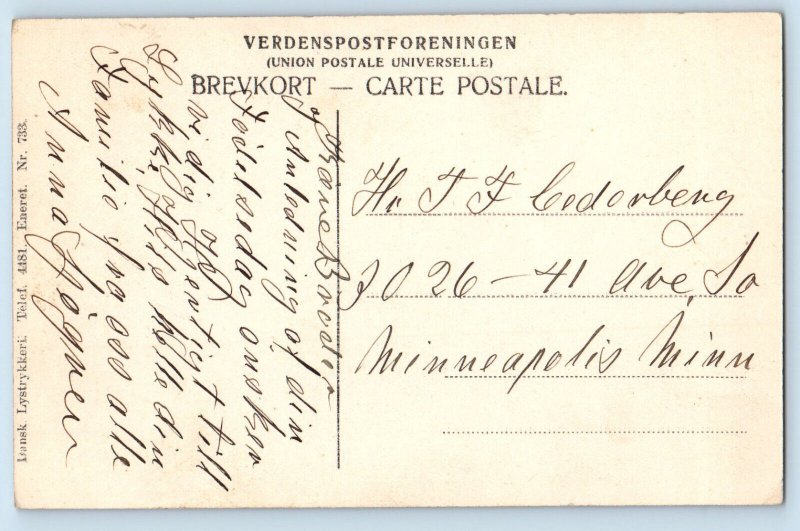 VERDENSPOSTFORENINGEN
(UNION POSTALE UNIVERSELLE)
BREVKORT — CARTE POSTALE.
Kære Broder
I Anledning af din
Fødselsdag onsker
vi dig Hjertigst till
Lykke, Hils hele din
Familie fra oss alle
Anna
Hr T F Cedarberg
3026 - 41 Ave So
Minneapolis Minn
Dansk. Lystrykkeri. Telef. 4481. Eneret. Nr. 733.